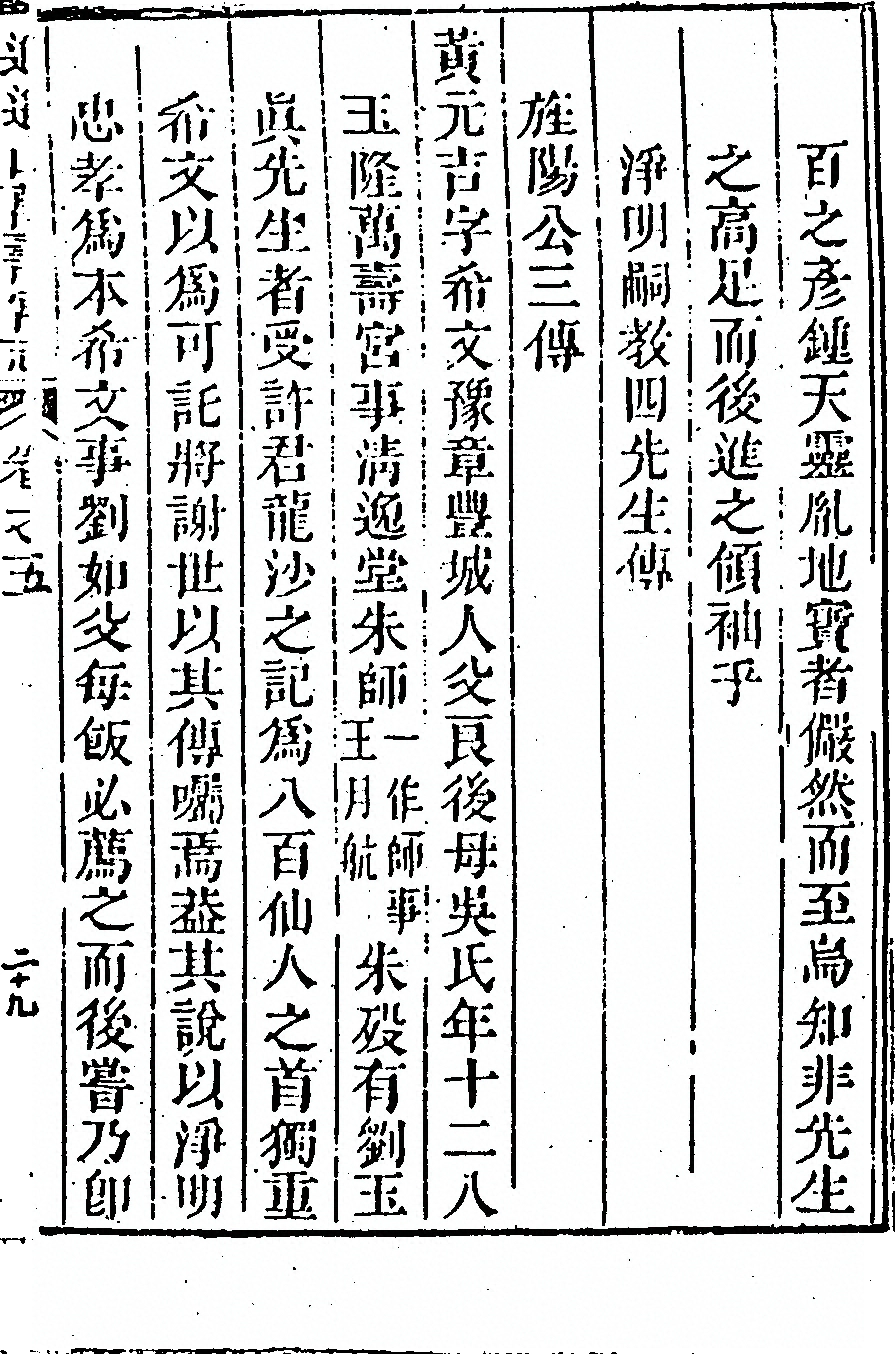 百之彥鍾天靈胤地寶者儼然而至焉知非先生
之高足而後進之領袖乎
淨明嗣教四先生傳
旌陽公三傳
黃元吉字希文豫章豐城人父良後母吳氏年十二入
玉隆萬壽宮事清逸堂朱師一作師事王月航朱歿有劉玉
眞先生者受許君龍沙之記爲八百仙人之首獨重
希文以爲可託將謝世以其傳囑焉葢其說以淨明
忠孝爲本希文事劉如父每飯必薦之而後嘗乃卽
卷之五
二十九